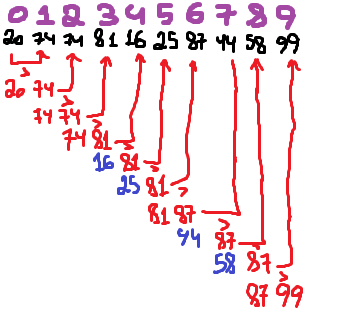 0 1 2 3 4 5 6 7 8 9
20 74 74 81 16 25 87 44 58 99
>
20 74
>
74 74
>
74 81
>
16 81
>
25 81
>
81 87
>
44 87
>
58 87
>
87 99